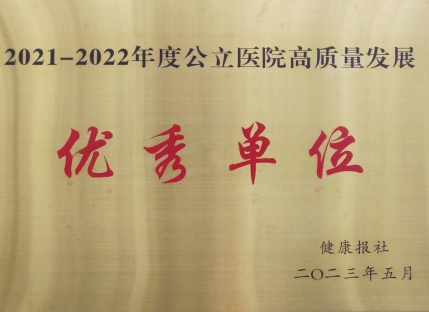 2021-2022年度公立医院高质量发展
优秀单位
健康报社
二〇二三年五月